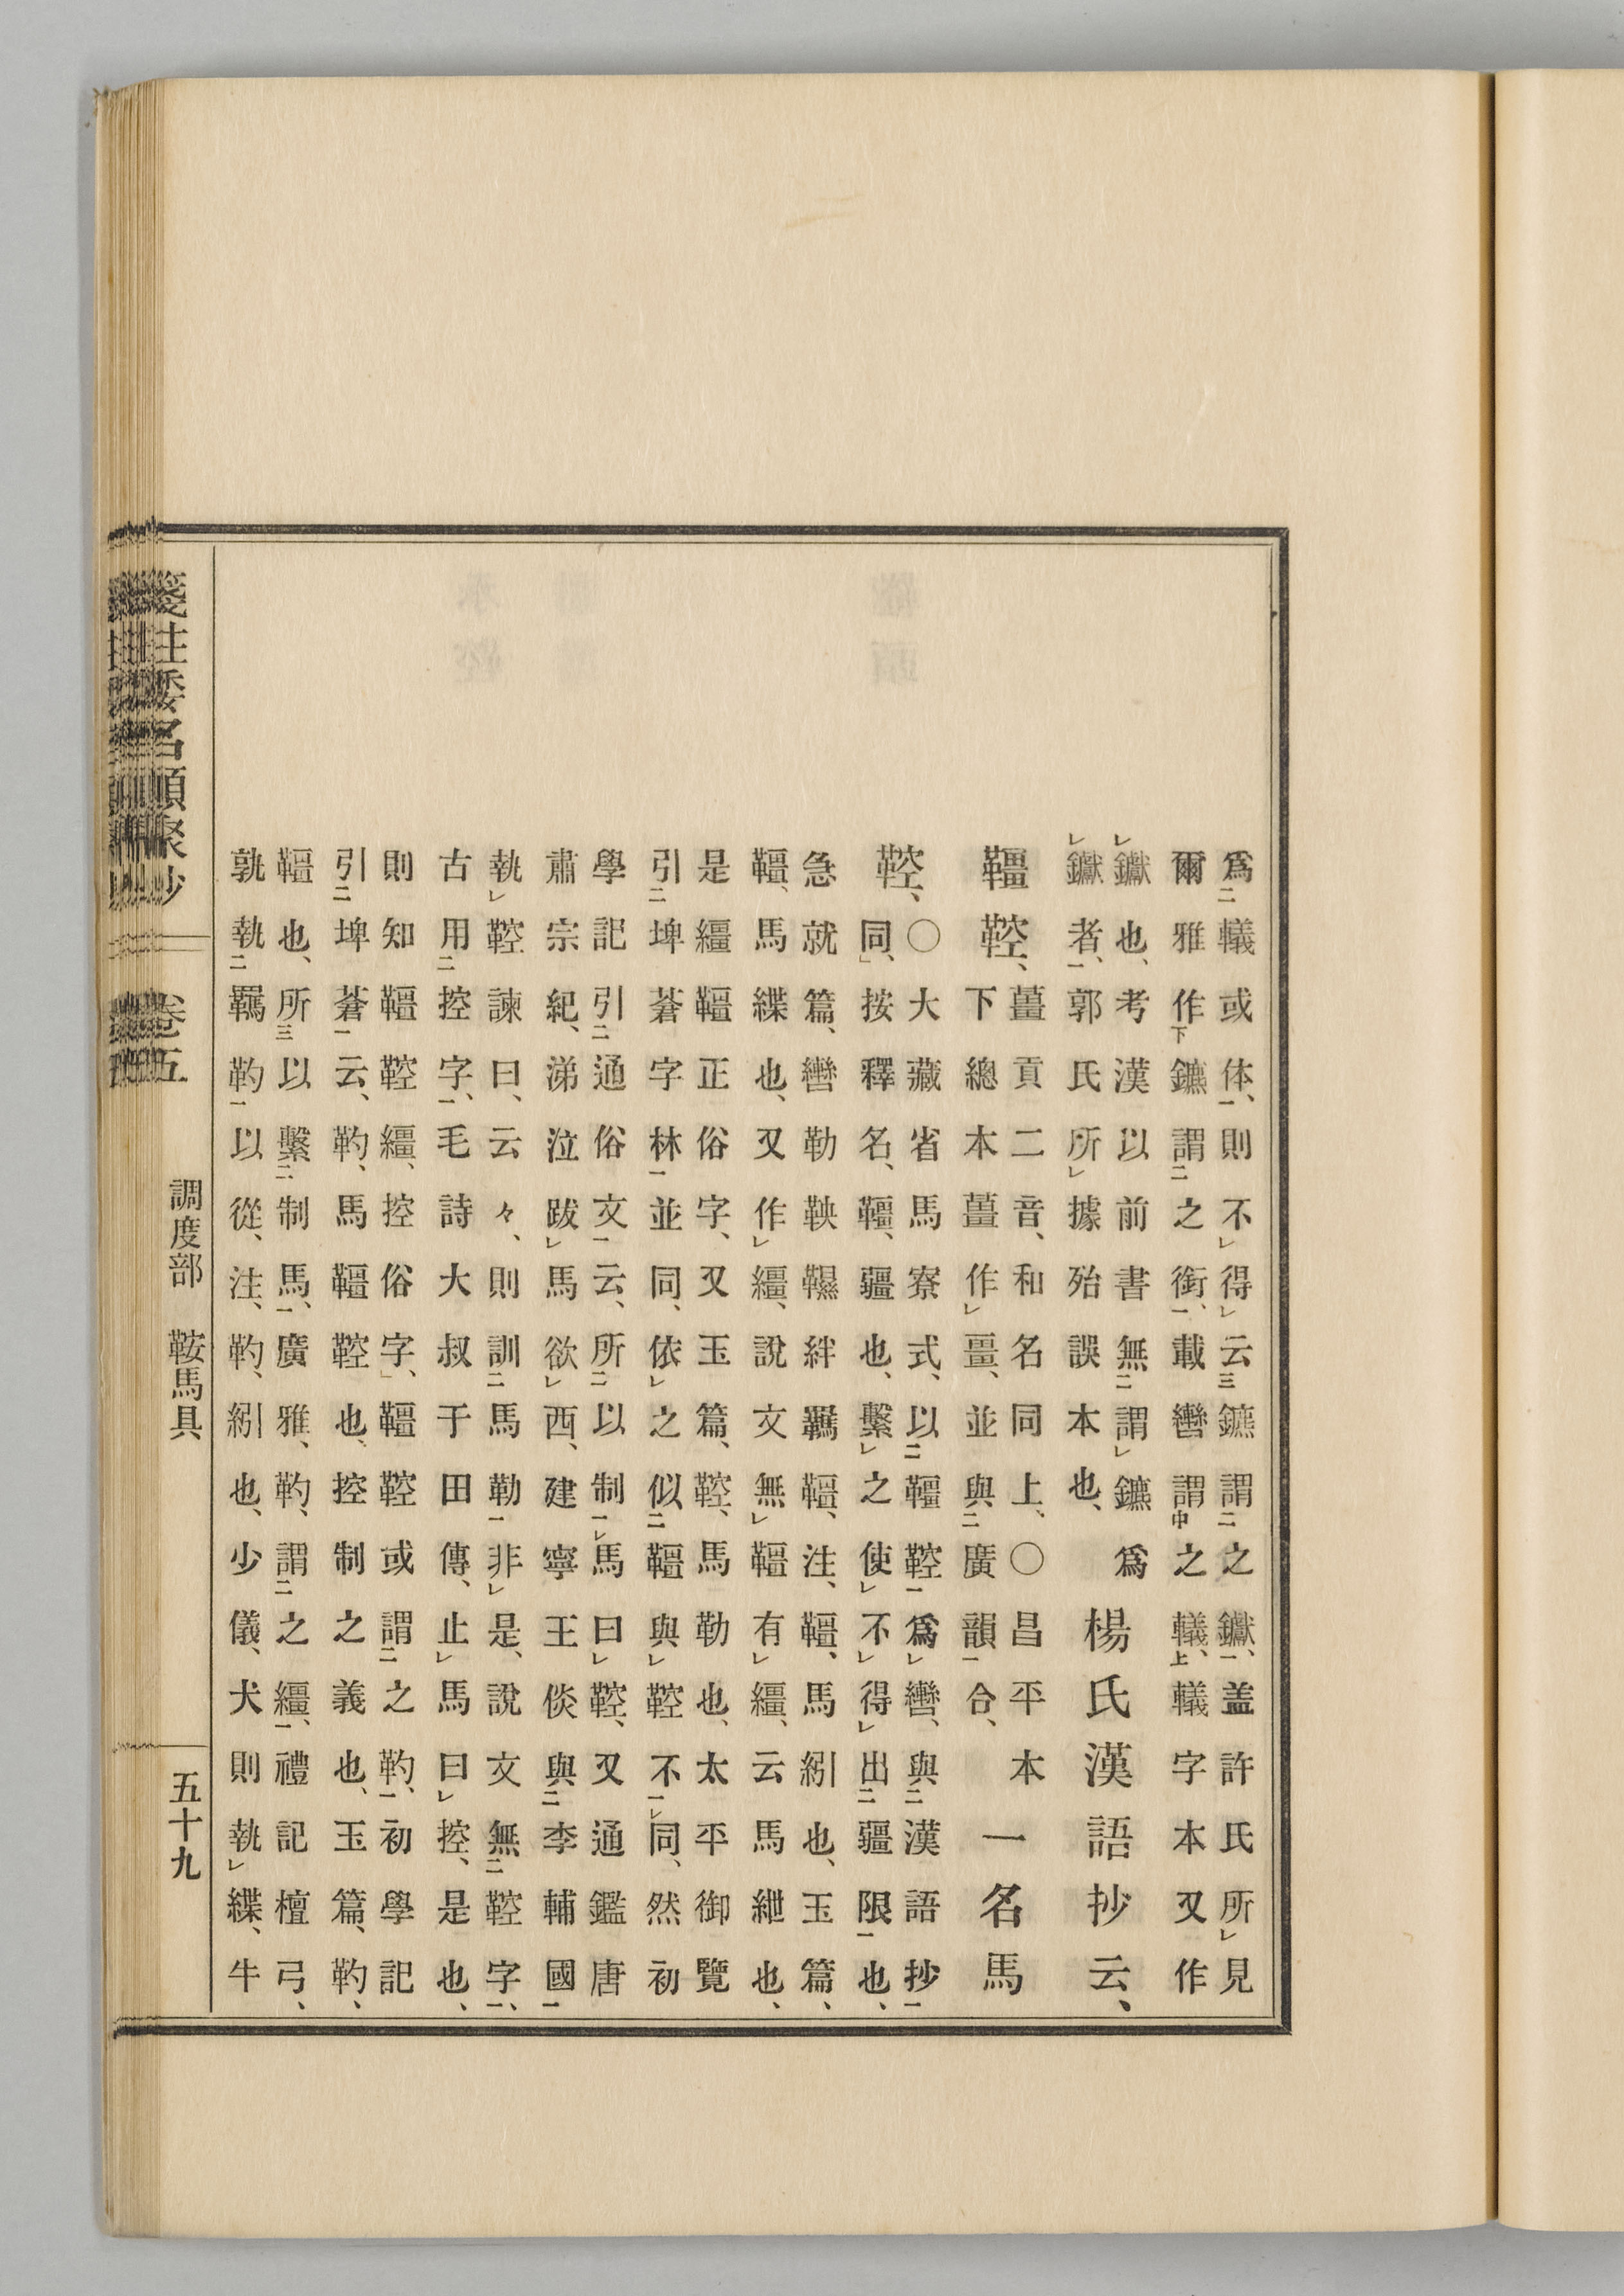 爲二轙或体一、則不レ得レ云三鑣謂二之钀一、盖許氏所レ見
爾雅作下鑣謂二之銜一、載轡謂中之轙上、轙字本又作
レ钀也、考漢以前書無二謂レ鑣爲
レ钀者一、郭氏所レ據殆誤本也、
楊氏漢語抄云、
韁鞚、
薑貢二音、和名同上、○昌平本
下總本薑作レ畺、並與二廣韻一合、
一名馬
鞚、
○大藏省馬寮式、以二韁鞚一爲レ轡、與二漢語抄一
同、按釋名、韁、疆也、繫レ之使レ不レ得レ出二疆限一也、
急就篇、轡勒鞅韅絆羈韁、注、韁、馬紖也、玉篇、
韁、馬緤也、又作レ繮、說文無レ韁有レ繮、云馬紲也、
是繮韁正俗字、又玉篇、鞚、馬勒也、太平御覽
引二埤蒼字林一並同、依レ之似二韁與レ鞚不一レ同、然初
學記引二通俗文一云、所二以制一レ馬曰レ鞚、又通鑑唐
肅宗紀、涕泣跋レ馬欲レ西、建寧王倓與二李輔國一
執レ鞚諫曰、云々、則訓二馬勒一非レ是、說文無二鞚字一、
古用二控字一、毛詩大叔于田傳、止レ馬曰レ控、是也、
則知韁鞚繮、控俗字、韁鞚或謂二之靮一、初學記
引二埤蒼一云、靮、馬韁鞚也、控制之義也、玉篇、靮、
韁也、所三以繫二制馬一、廣雅、靮、謂二之繮一、禮記檀弓、
孰執二羈靮一以從、注、靮、紖也、少儀、犬則執レ緤、牛
箋注倭名類聚抄 卷五 調度部 鞍馬具 五十九